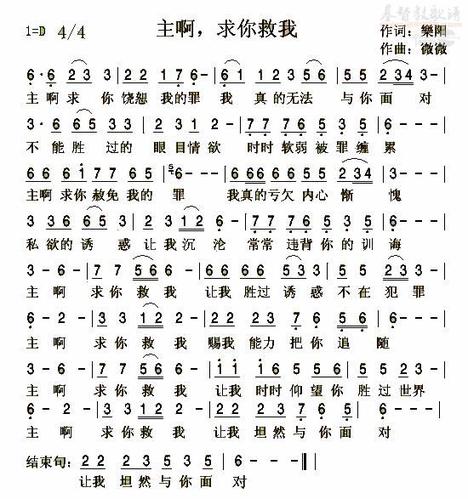 基督教歌谱
主啊，求你救我
1=D 4/4 作词：樂阳
作曲：微微
6 · 6 2 3 | 3 - 1 2 | 2 2 1 7 6 · | 6 1 1 2 3 5 | 5 2 2 3 4 3 - |
主 啊 求 你 饶恕 我的罪 我 真的无法 与你面 对
3 · 6 6 5 | 3 - 1 2 | 2 3 2 1 2 - | 7 7 6 5 7 7 6 5 | 3 - - - |
不 能 胜 过的 眼目情欲 时时软弱被罪缠 累
6 6 6 1 2 3 | 3 3 1 2 6 - - | 1 2 3 5 5 2 | 2 3 4 3 - |
主啊求你赦免我的 罪 我真的亏欠 内心 惭 愧
3 3 6 6 5 | 3 - 2 3 | 1 2 6 - | 7 7 6 5 7 7 6 5 | 6 - - - |
私 欲 的 诱 惑 让 我 沉 沦 常常 违背你的训诲
3 - 6 - | 7 7 5 6 | 5 6 3 3 2 3 | 5 - 2 2 | 2 3 - - |
主 啊 求你救我 让我胜过诱惑不在犯罪
6 - 2 - | 3 3 1 2 | 1 2 7 7 6 7 | 2 - 6 5 | 6 - - - |
主 啊 求你救我 赐我能力把你追随
3 - 6 - | 7 7 5 6 - | 1 1 1 1 6 5 6 | 5 2 2 5 3 |
主 啊 求你救我 让我时时仰望你胜过世界
6 - 2 - | 3 3 1 2 - | 2 2 2 3 2 7 6 | 5 - 6 - |
主 啊 求你救我 让我 坦然与你面 对
结束句：2 2 2 3 5 3 5 | 6 - - - ‖
让我 坦然与你面 对